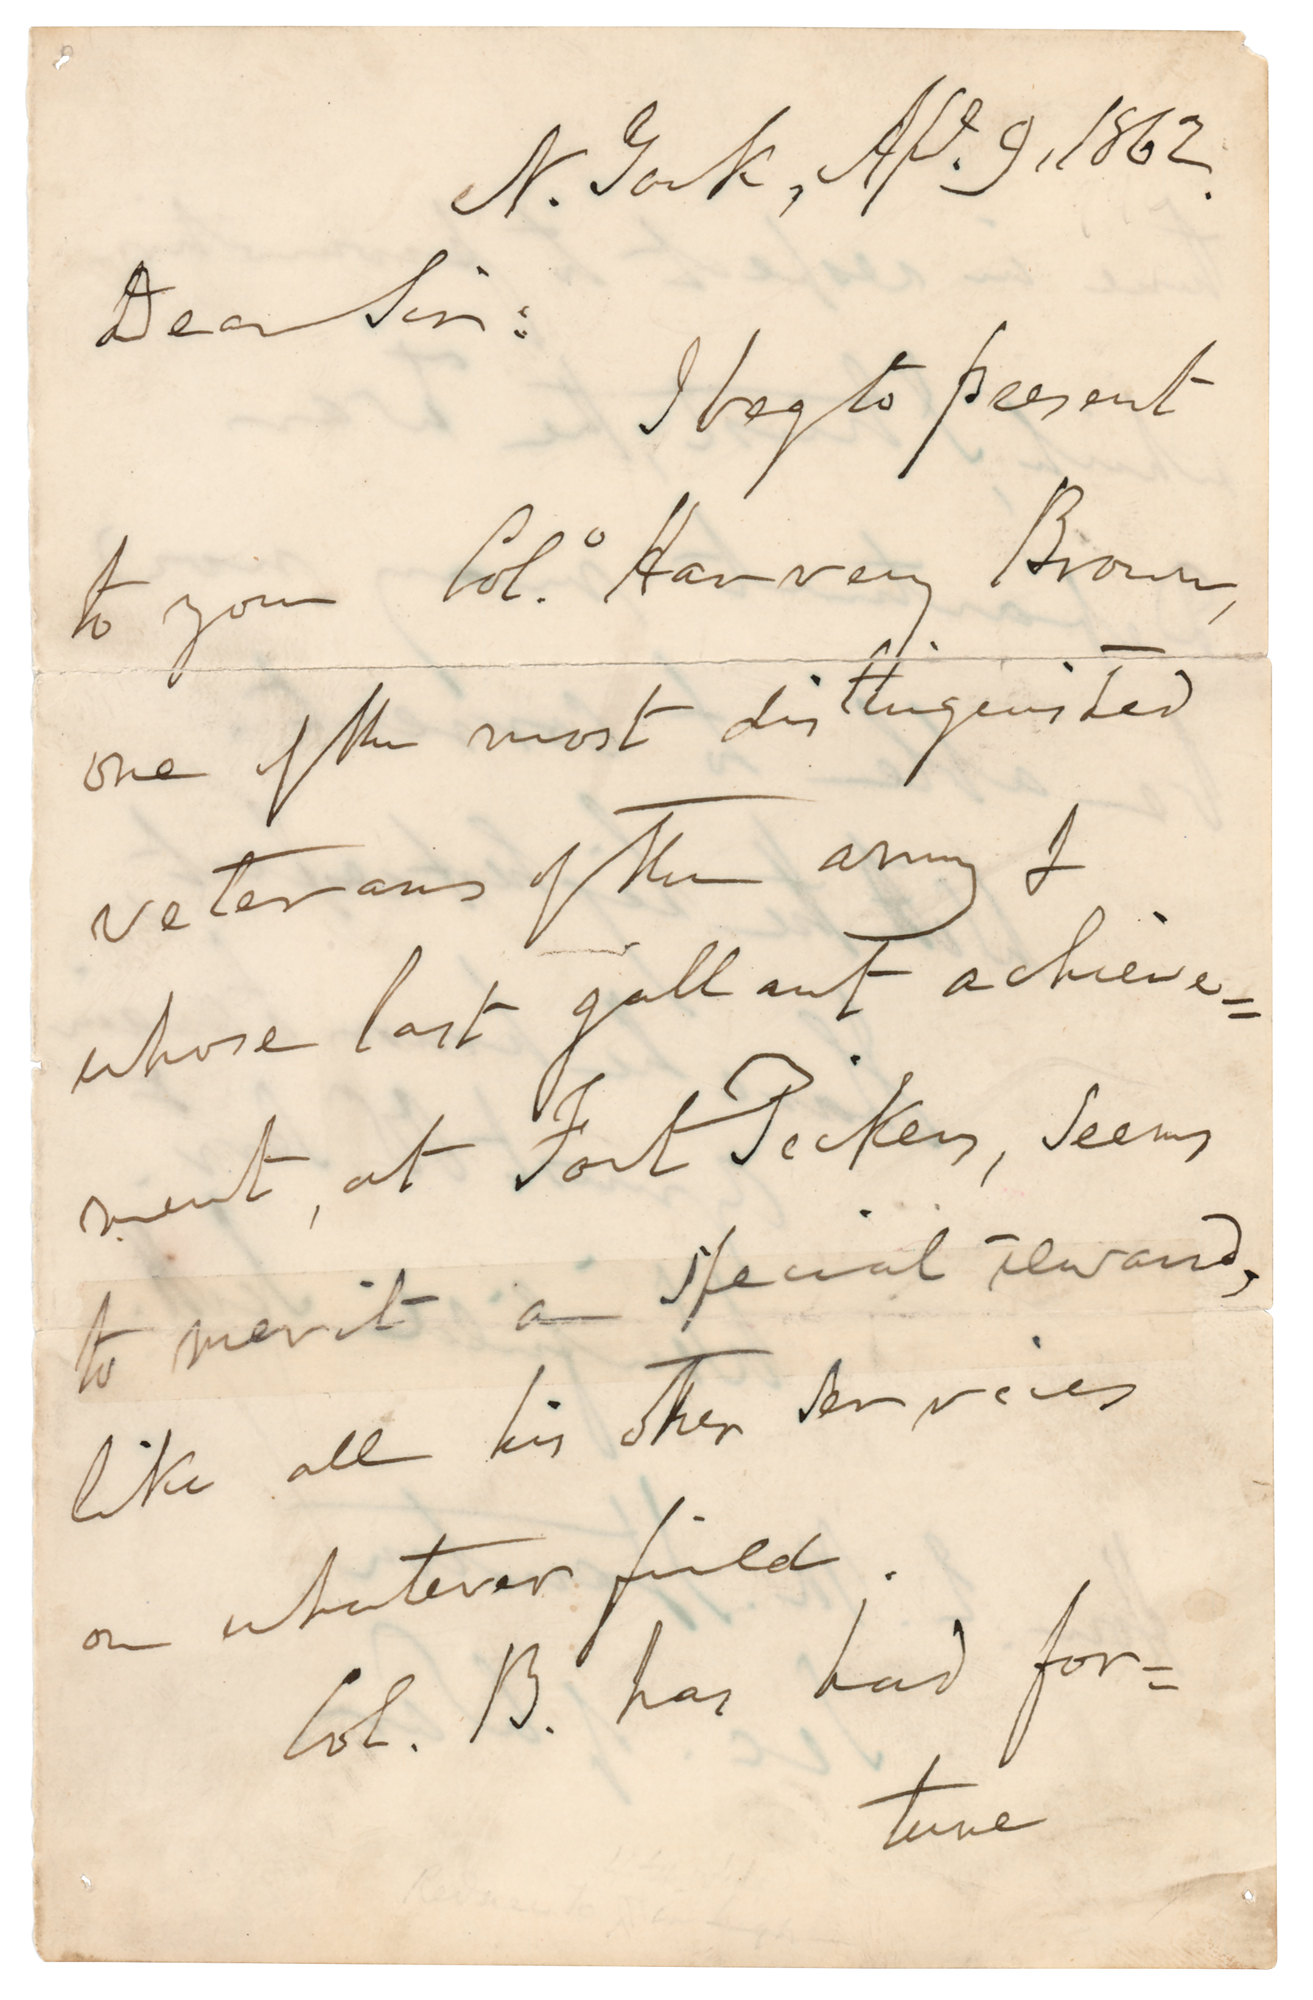 N. York, Apl. 9, 1862.
Dear Sir:
I beg to present
to your Col.º Harvey Brown,
one of the most distinguished
veterans of the army &
whose last gallant achieve=
ment, at Fort Pickens, seems
to merit a special reward,
like all his other services
on whatever field.
Col. B. has had for=
tune